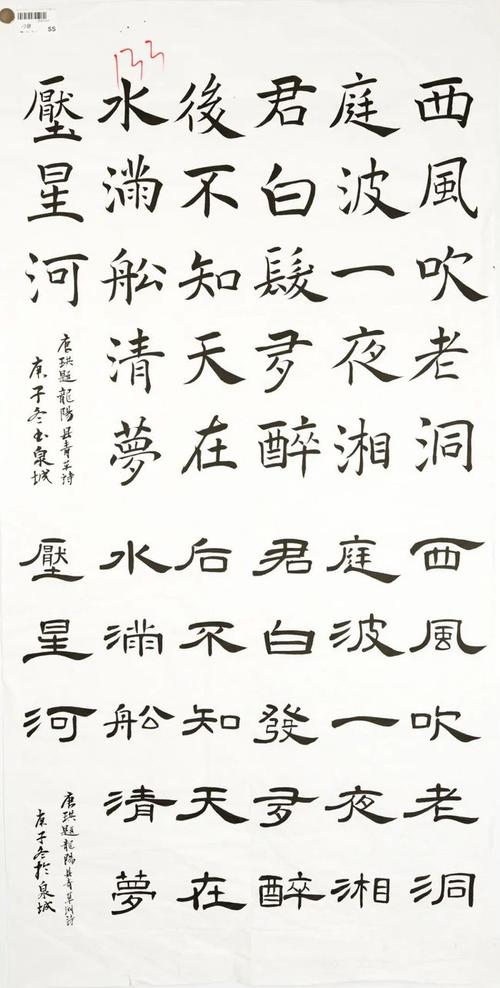 133
55
西風吹老洞
庭波一夜湘
君白髮多醉
後不知天在
水滿船清夢
壓星河
唐珙题龍陽县青草诗
庚子冬书泉城
西風吹老洞
庭波一夜湘
君白發多醉
后不知天在
水滿船清夢
壓星河
唐珙题龍陽县青草湖诗
庚子冬於泉城